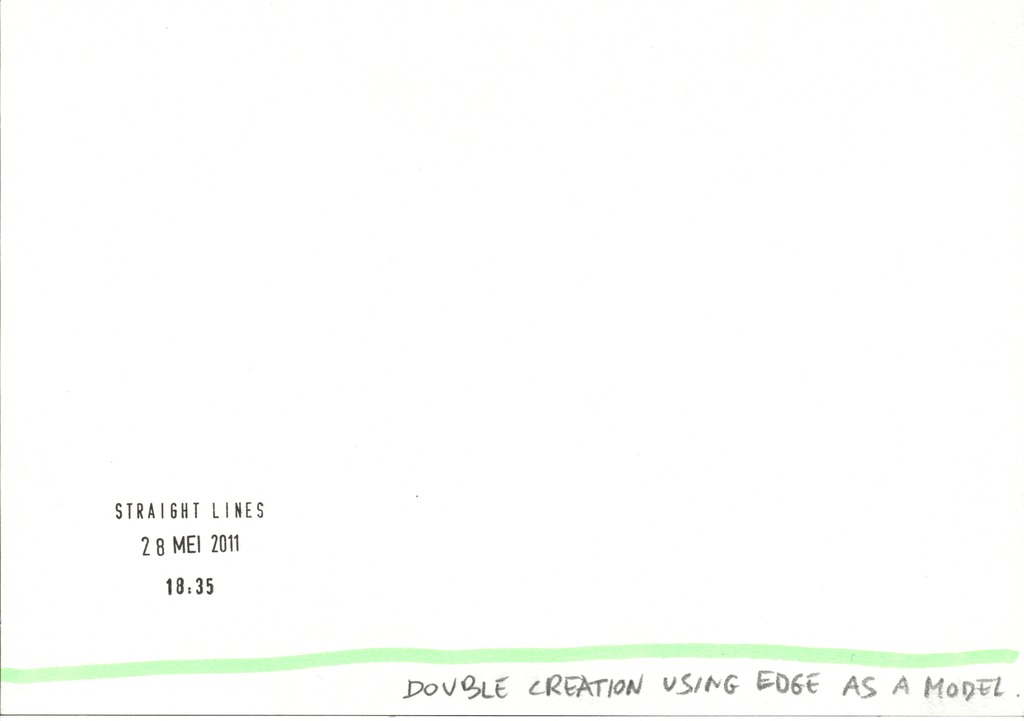 STRAIGHT LINES
28 MEI 2011
18:35
DOUBLE CREATION USING EDGE AS A MODEL.